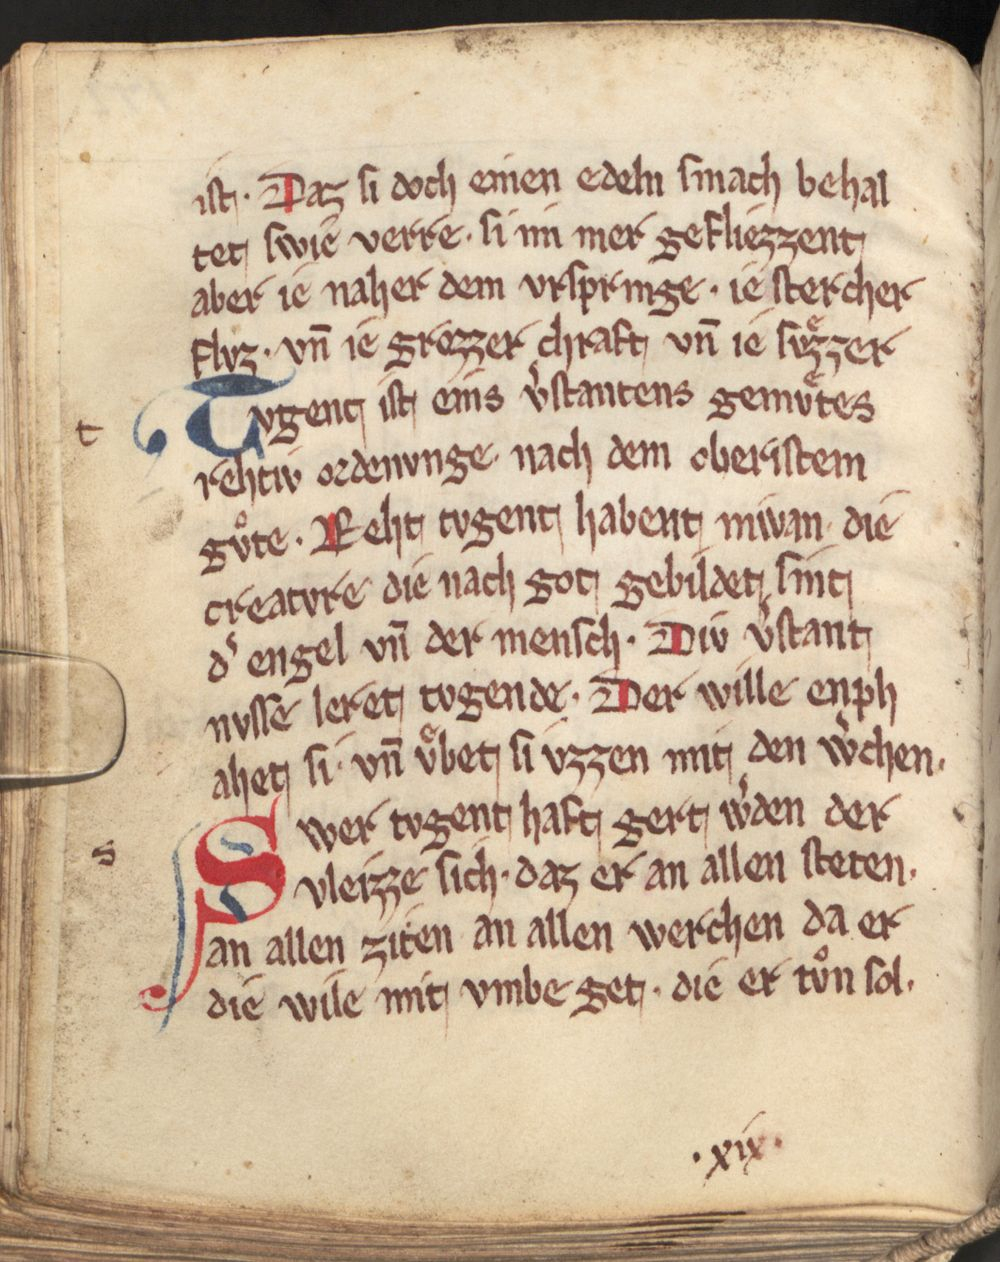 ist. Daz si doch einen edeln smach behal
tet swie verre. si im mer gefliezzent
aber ie naher dem vrspringe. ie stercher
flvz. vn̄ ie grezzer chraft vn̄ ie svͤzzer
t Tvgent ist eins v̓stantens gemvͤtes
rehtiv ordenvnge nach dem oberistem
gvͦte. Reht tvgent habent niwan die
creatvre die nach got gebildet sint
d᷑ engel vn̄ der mensch. Div v̓stant
nvsse leret tvgende. Der wille enph
ahet si. vn̄ vͤbet si vzzen mit den w̓chen.
s Swer tvgent haft gert w̓den der
vleizze sich. daz er an allen steten.
an allen ziten an allen werchen da er
die wile mit vmbe get. die er tvͦn sol.
.xix.